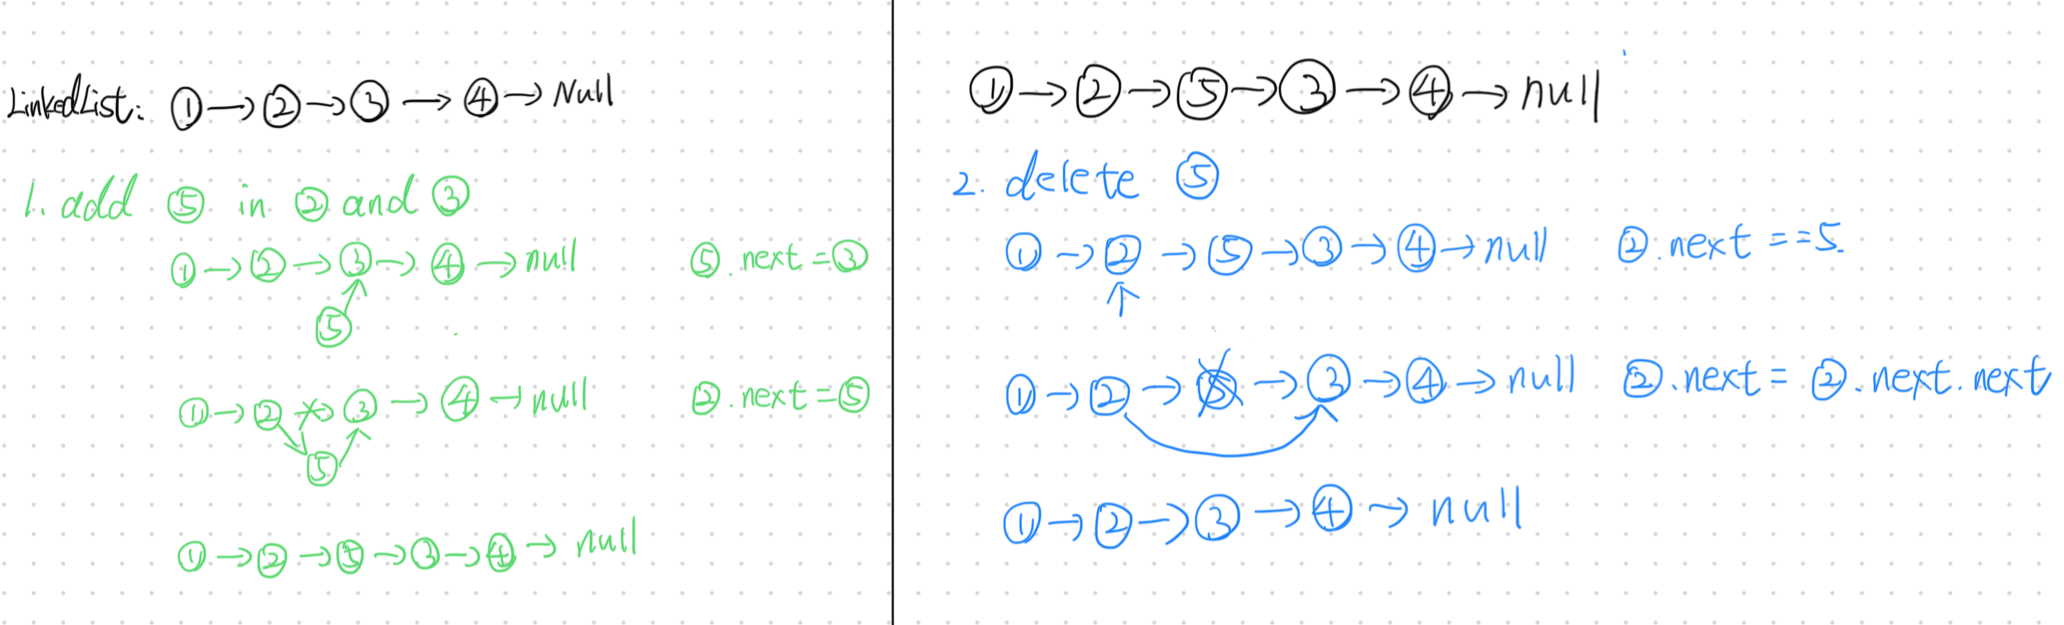 LinkedList: ① → ② → ③ → ④ → Null
1. add ⑤ in ② and ③
① → ② → ③ → ④ → null ⑤.next = ③
⑤
① → ② → ③ → ④ → null ②.next = ⑤
⑤
① → ② → ⑤ → ③ → ④ → null
① → ② → ⑤ → ③ → ④ → null
2. delete ⑤
① → ② → ⑤ → ③ → ④ → null ②.next == 5.
↑
① → ② → ⑤ → ③ → ④ → null ②.next = ②.next.next
① → ② → ③ → ④ → null